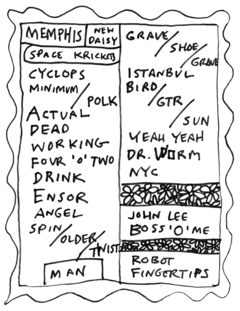 MEMPHIS
NEW DAISY
SPACE KRICKETS
CYCLOPS
MINIMUM/
POLK
ACTUAL
DEAD
WORKING
FOUR 'O' TWO
DRINK
ENSOR
ANGEL
SPIN/
OLDER/
TWIST
MAN
GRAVE/
SHOE/
GRAVE
ISTANBUL
BIRD/
GTR/
SUN
YEAH YEAH
DR. WORM
NYC
JOHN LEE
BOSS 'O' ME
ROBOT
FINGERTIPS